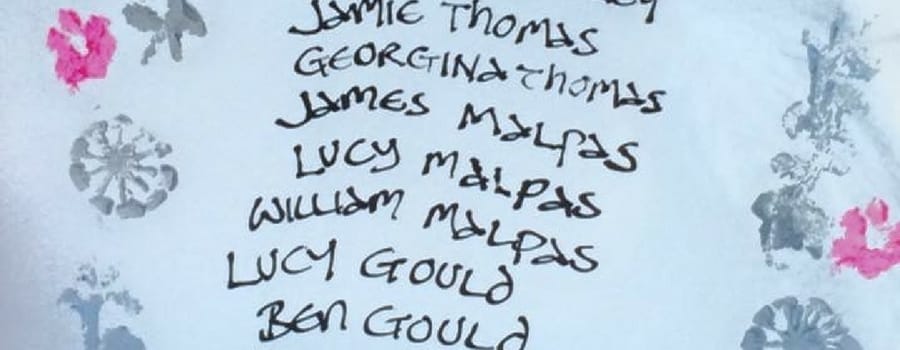 JAMIE THOMAS
GEORGINA THOMAS
JAMES MALPAS
LUCY MALPAS
WILLIAM MALPAS
LUCY GOULD
BEN GOULD